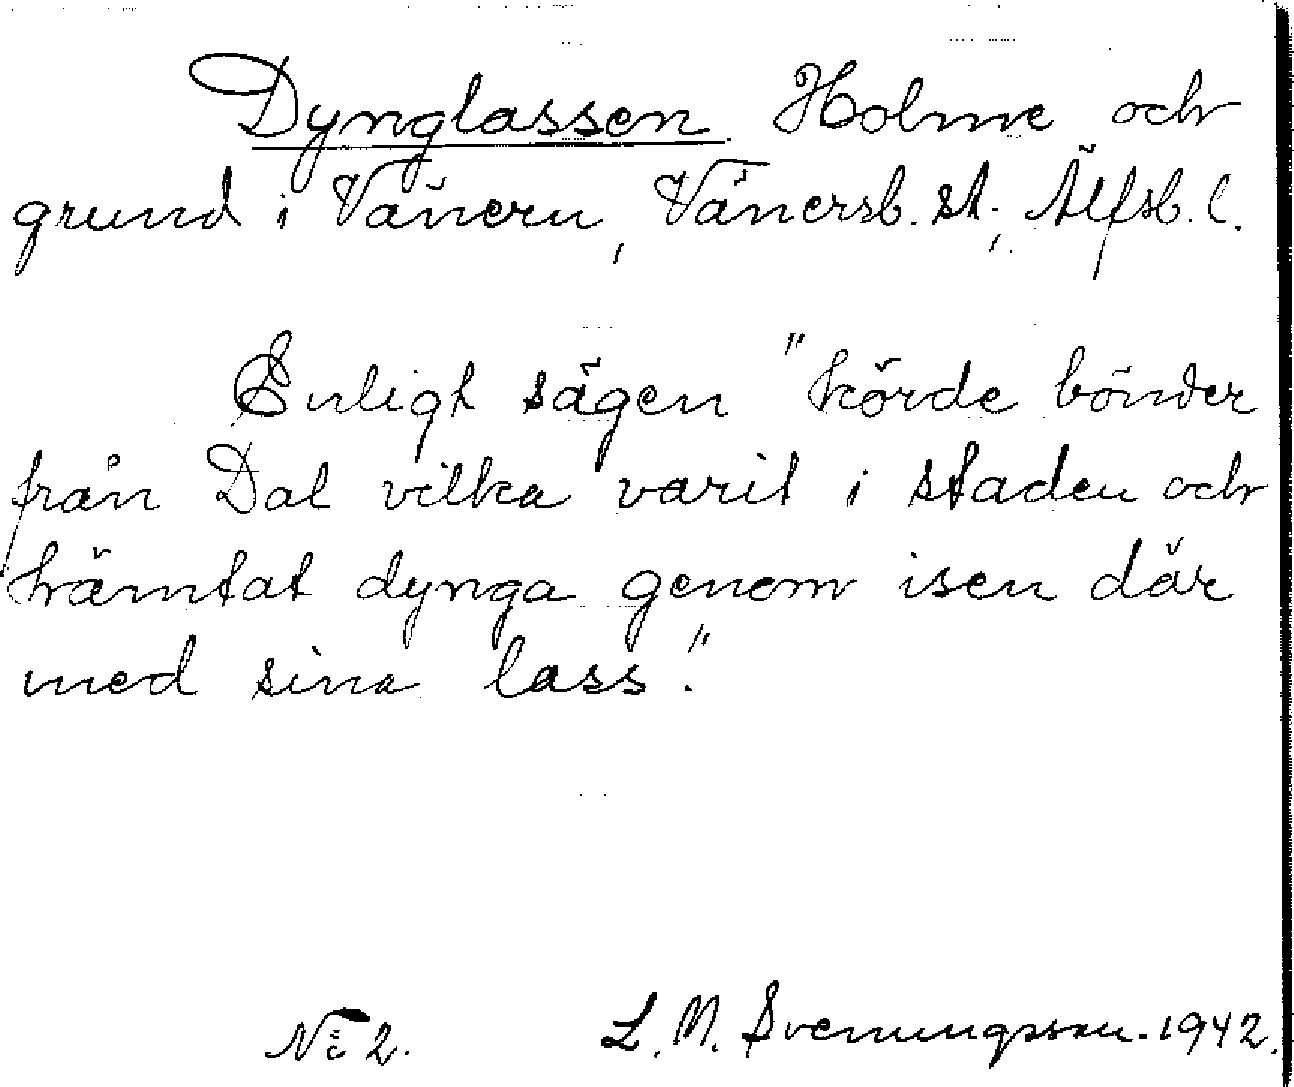 Dynglassen. Holme och
grund i Vänern, Vänersb. st., Älfsb. l.
Enligt sägen "körde bönder
från Dal vilka varit i staden och
hämtat dynga genom isen där
med sina lass."
No 2. L. M. Svenungsson. 1942.